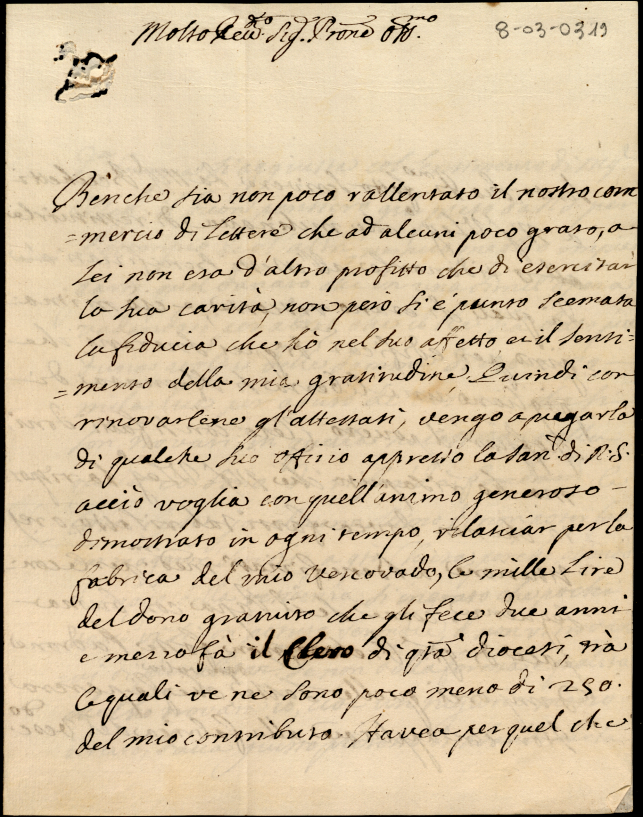 Molto Rev.do Sig.r Prone Oss.mo
8-03-0319
Benche sia non poco rallentato il nostro com
=mercio di lettere che ad alcuni poco grato, a
lei non era d'altro profitto che di esercitar
la sua carità, non però si è punto scemata
la fiducia che hò nel suo affetto e il senti=
=mento della mia gratitudine. Quindi con
rinovarlene gl'attestati, vengo a pregarla
di qualche suo officio appresso la San.tà di N.S.
acciò voglia con quell'animo generoso
dimostrato in ogni tempo, rilasciar per la
fabrica del mio Vescovado, le mille lire
del dono gratuito che gli fece due anni
e mezzo fà il Clero di q.ta diocesi, trà
le quali ve ne sono poco meno di 250.
del mio contributo. Havea per quel che